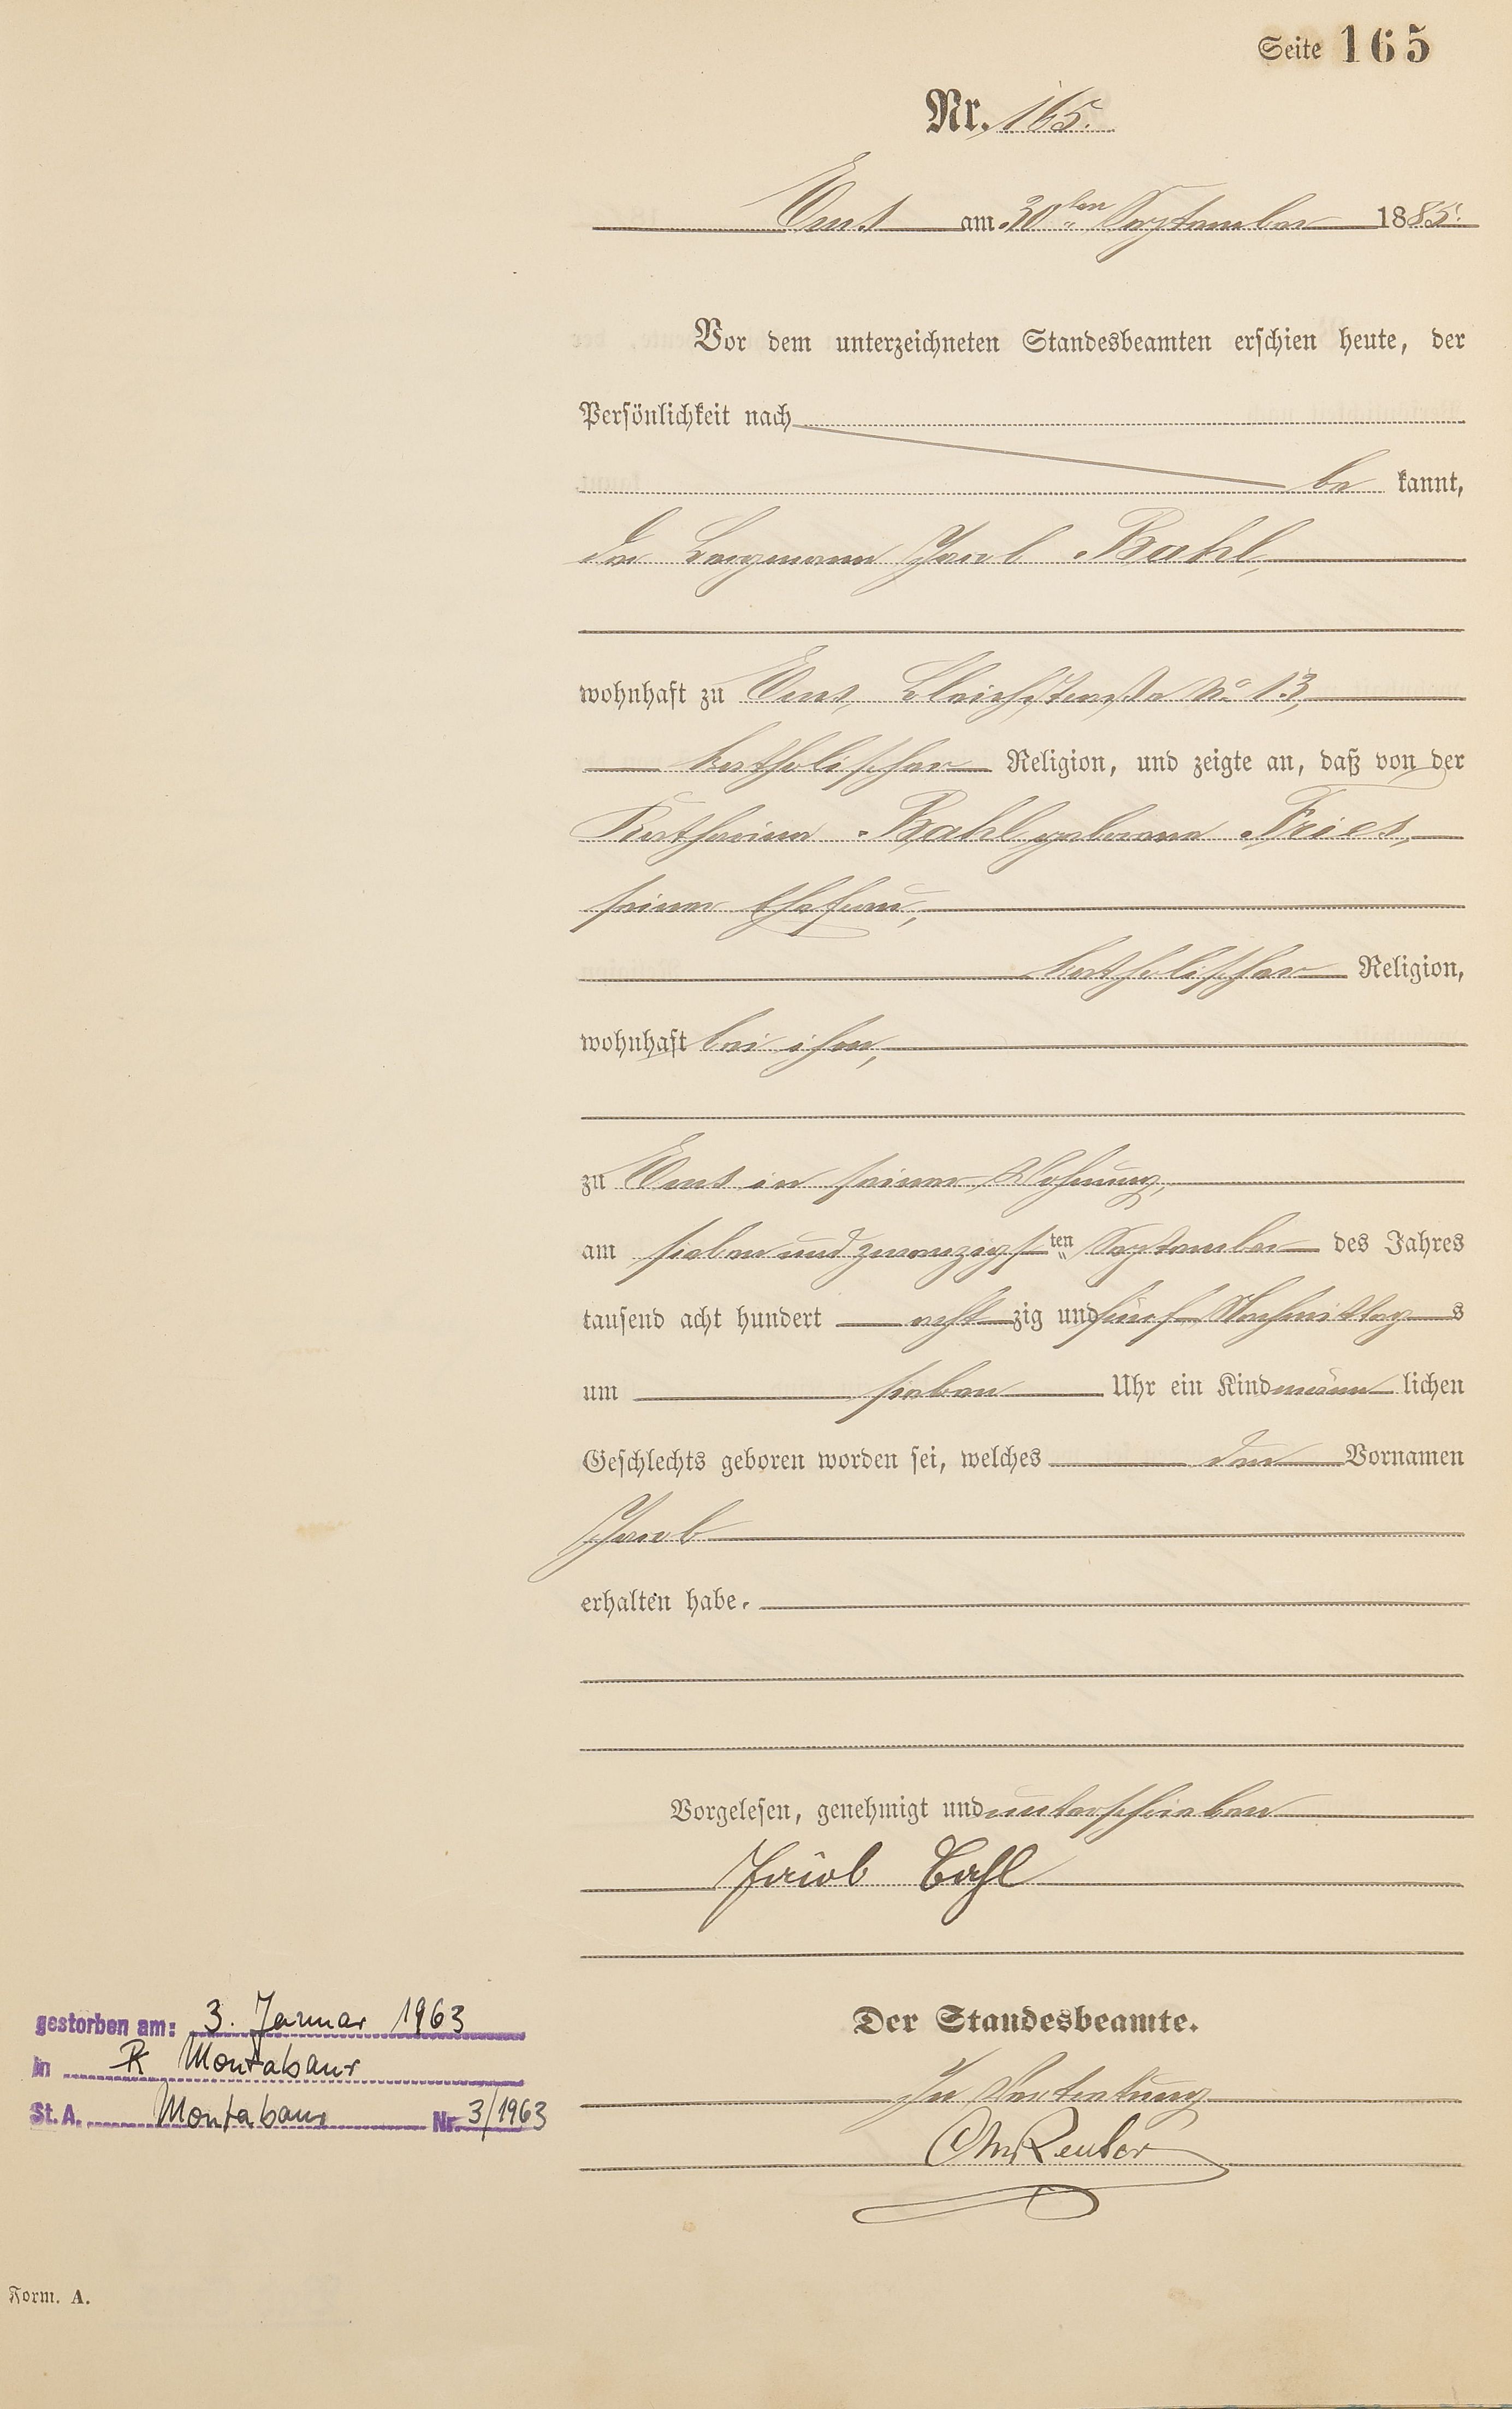 Seite 165
Nr. 165.
Ems am 30ten September 1885.
Vor dem unterzeichneten Standesbeamten erschien heute, der
Persönlichkeit nach
be kannt,
der Bergmann Jacob Bahl,
wohnhaft zu Ems, Bleichstraße No 13,
katholischer Religion, und zeigte an, daß von der
Katharina Bahl geborene Fries,
seiner Ehefrau,
katholischer Religion,
wohnhaft bei ihm,
zu Ems in seiner Wohnung,
am sieben und zwanzigsten September des Jahres
tausend acht hundert acht zig und fünf Nachmittags
um sieben Uhr ein Kind männ lichen
Geschlechts geboren worden sei, welches den Vornamen
Jacob
erhalten habe.
Vorgelesen, genehmigt und unterschrieben
Jacob Bahl
Der Standesbeamte.
In Vertretung
Reuter
gestorben am: 3. Januar 1963
in Montabaur
St. A. Montabaur Nr. 3/1963
Form. A.